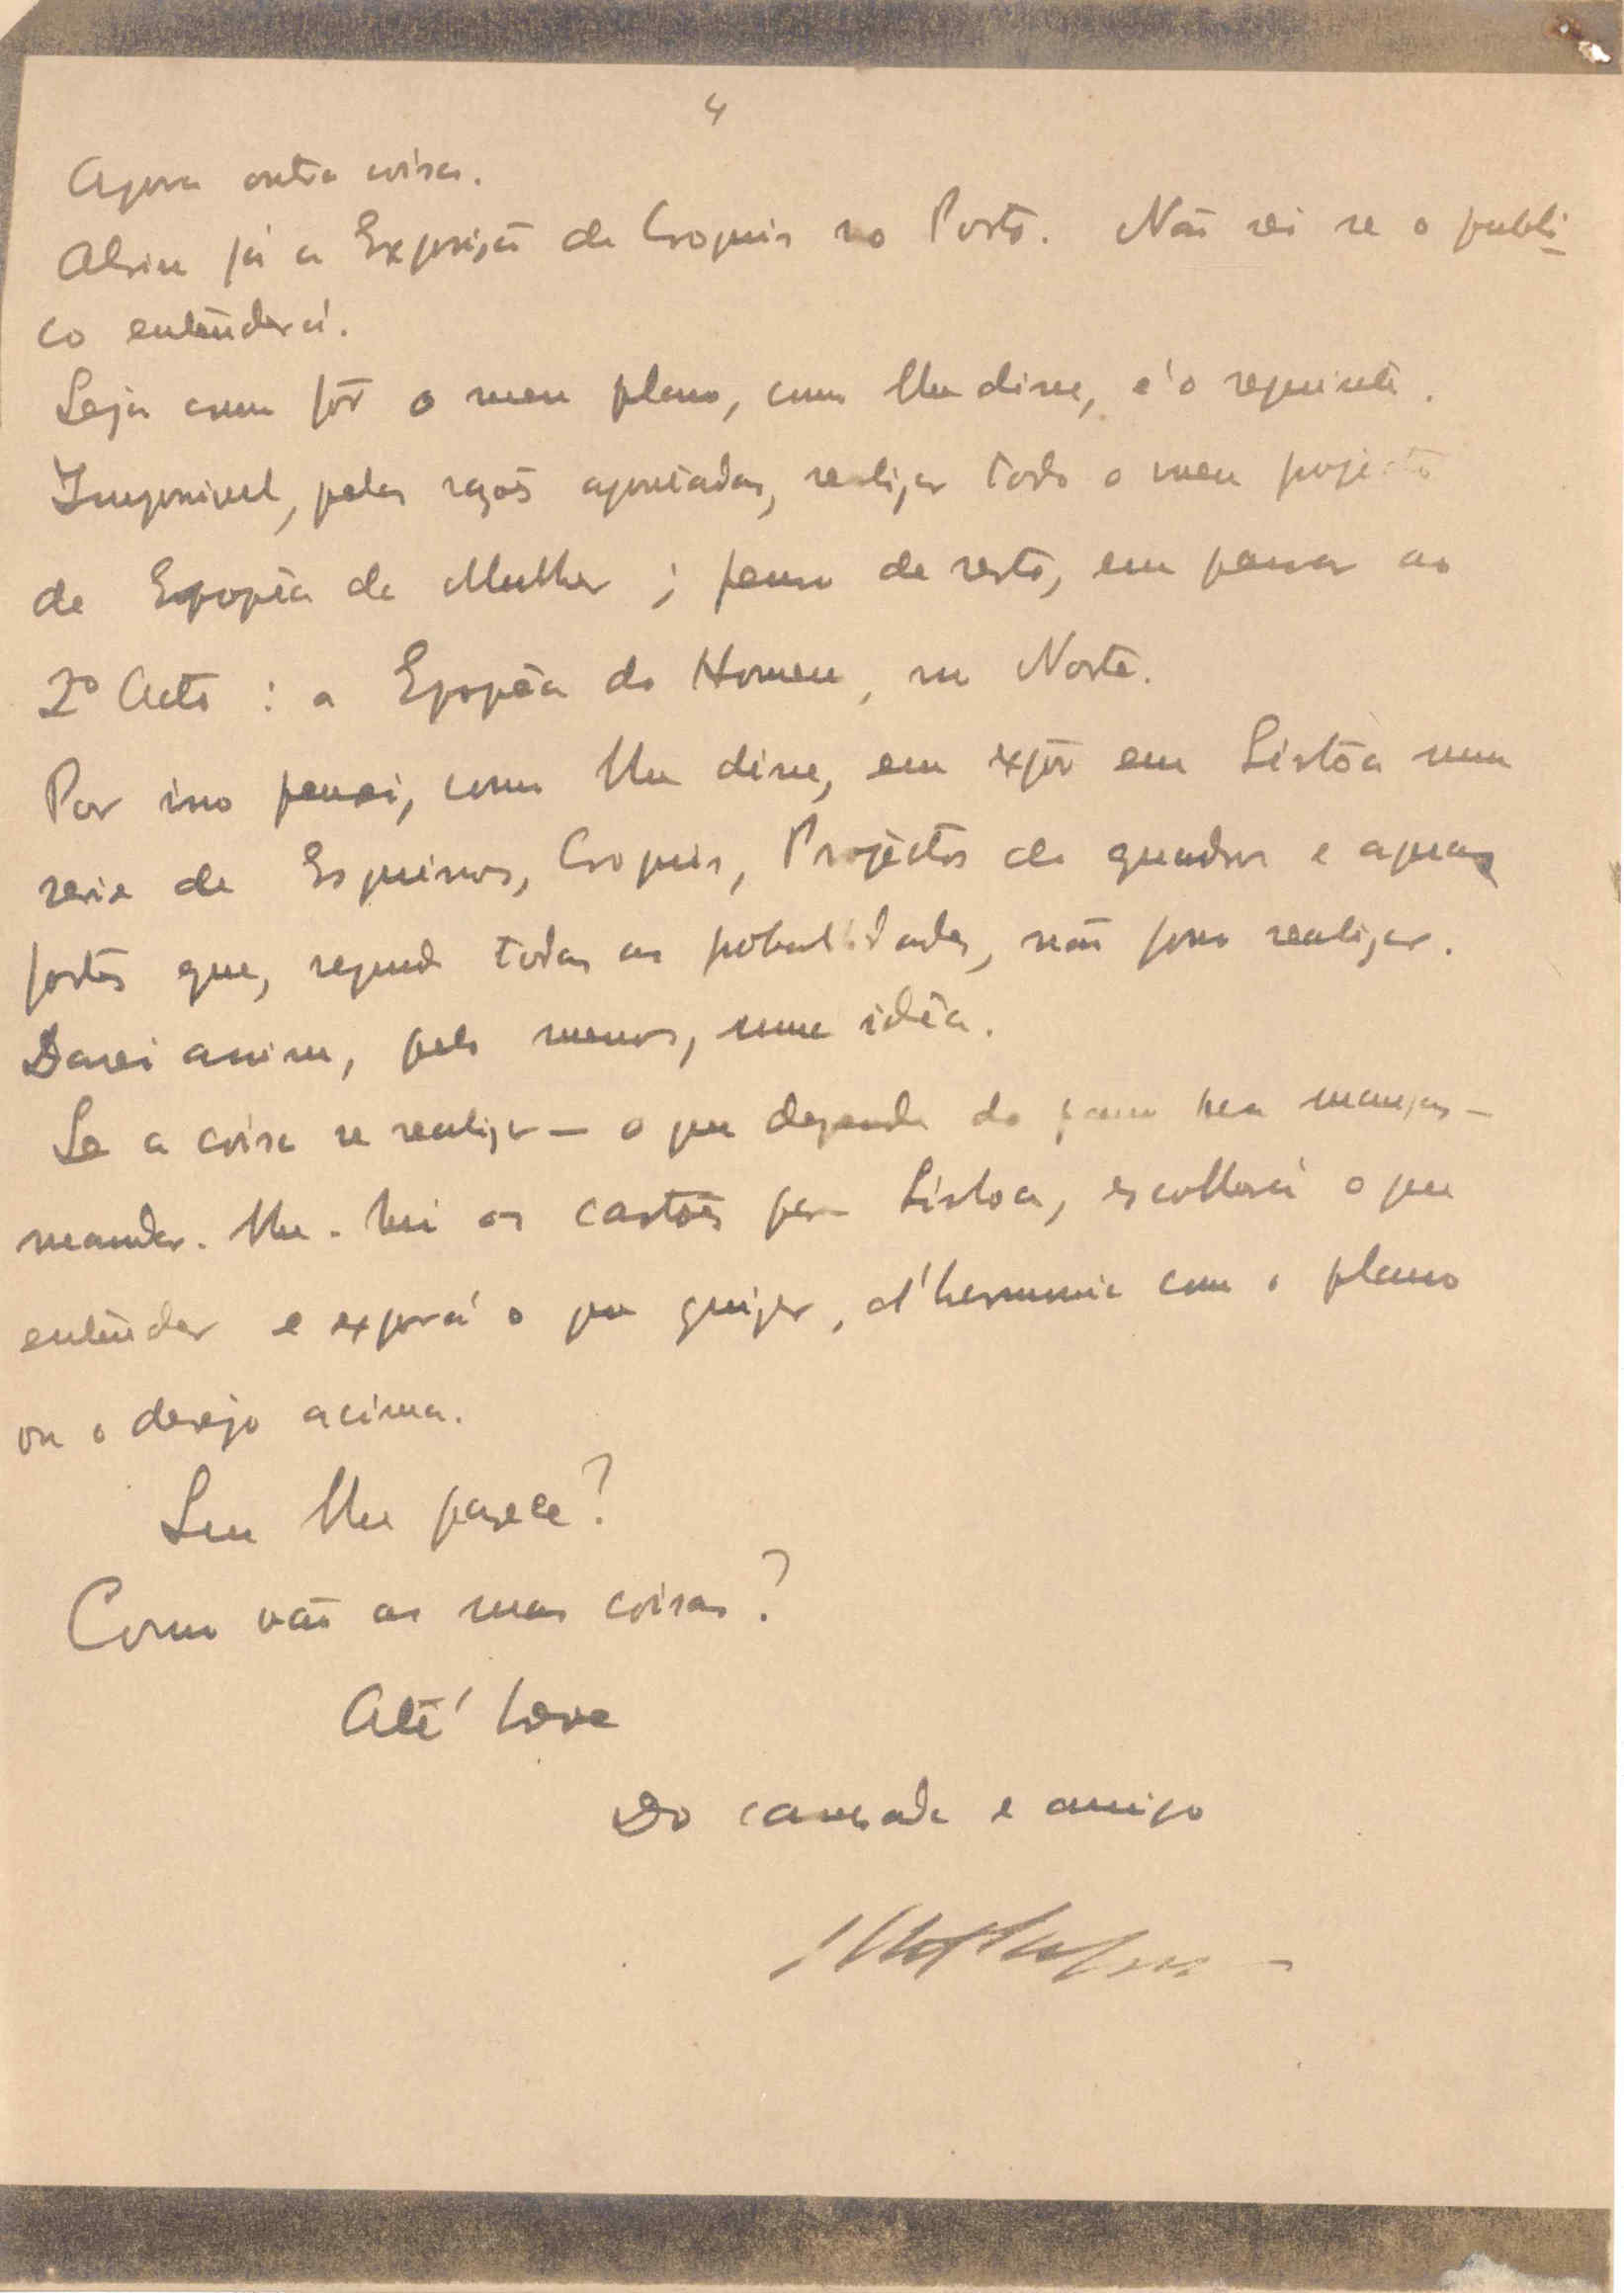 4
Agora outra coisa.
Abriu já a Exposição de Croquis no Porto. Não sei se o publi-
co entenderá.
Seja como fôr o meu plano, como lhe disse, é o seguinte.
Impossivel, pelas razões apontadas, realizar todo o meu projecto
de Epopêa da Mulher; penso de resto, em passar ao
2º Acto: a Epopêa do Homem, no Norte.
Por isso pensei, como lhe disse, em expôr em Lisbôa uma
serie de Esquissos, Croquis, Projéctos de quadros e aguas
fortes que, segundo todas as probabilidades, não posso realizar.
Darei assim, pelo menos, uma idêa.
Se a coisa se realizar — o que depende do
mandar-lhe-hei os cartões para Lisboa, escolherá o que
entender e exporá o que quizer, d'harmonia com o plano
ou o desejo acima.
Que lhe parece?
Como vão as suas coisas?
Até breve
Do camarada e amigo